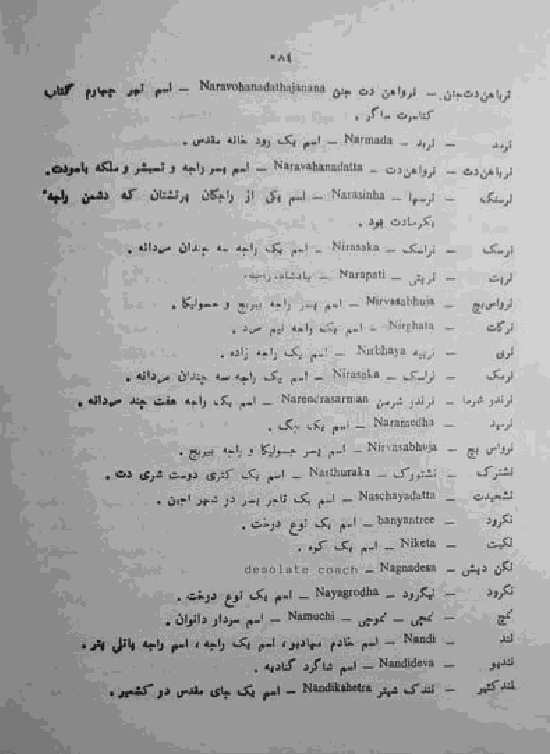 ۵۸۴
نرباهن‌دت‌جنن — نرواهن دت جنن Naravohanadathajanana — اسم لهر چهارم کتاب
کتاسرت ساگر .
نربد — نربد — Narmada — اسم یک رود خانه مقدس .
نرباهن‌دت — نرواهن‌دت — Naravahanadatta — اسم پسر راجه و ملکه باسودت .
نرسنگ — نرسها — Narasinha — اسم یکی از راجگان پرتشتان که دشمن راجه
بکرمادت بود .
نرسک — نراسک — Nirasaka — اسم یک راجه سه چندان مردانه .
نرپت — نرپتی — Narapati — بادشاه
نرواس‌بج — Nirvasabhuja — اسم پسر راجه و
نرگات — Nirghata — اسم یک راجه
نربی — نربیه Nirbhaya — اسم یک راجه زاده .
نرسک — نراسک — Nirasaka — اسم یک راجه سه چندان مردانه .
نرندر شرما — نرندر شرمن Narendrasarman — اسم یک راجه هفت چند مردانه .
نرمید — Naramedha — اسم یک جگ .
نرواس بج — Nirvasabhuja — اسم پسر و راجه
نشترک — نشتورک — Nasthuraka — اسم یک کتری دوست شری دت .
نشچیدت — Naschayadatta — اسم یک تاجر پسر در شهر اجین .
نکرود — banyantree — اسم یک نوع درخت .
نکیت — Niketa — اسم یک کوه .
نکن دیش — Nagnadesa — desolate coach
نکرود — نیگرود — Nayagrodha — اسم یک نوع درخت .
نمچ — نمچی — نموچی — Namuchi — اسم سردار دانوان .
نند — Nandi — اسم خادم مهادیو، اسم یک راجه، اسم راجه پاتلی پتر .
نندیو — Nandideva — اسم شاگرد
نندکشیر — نندک شیتر Nandikshetra — اسم یک جای مقدس در کشمیر .